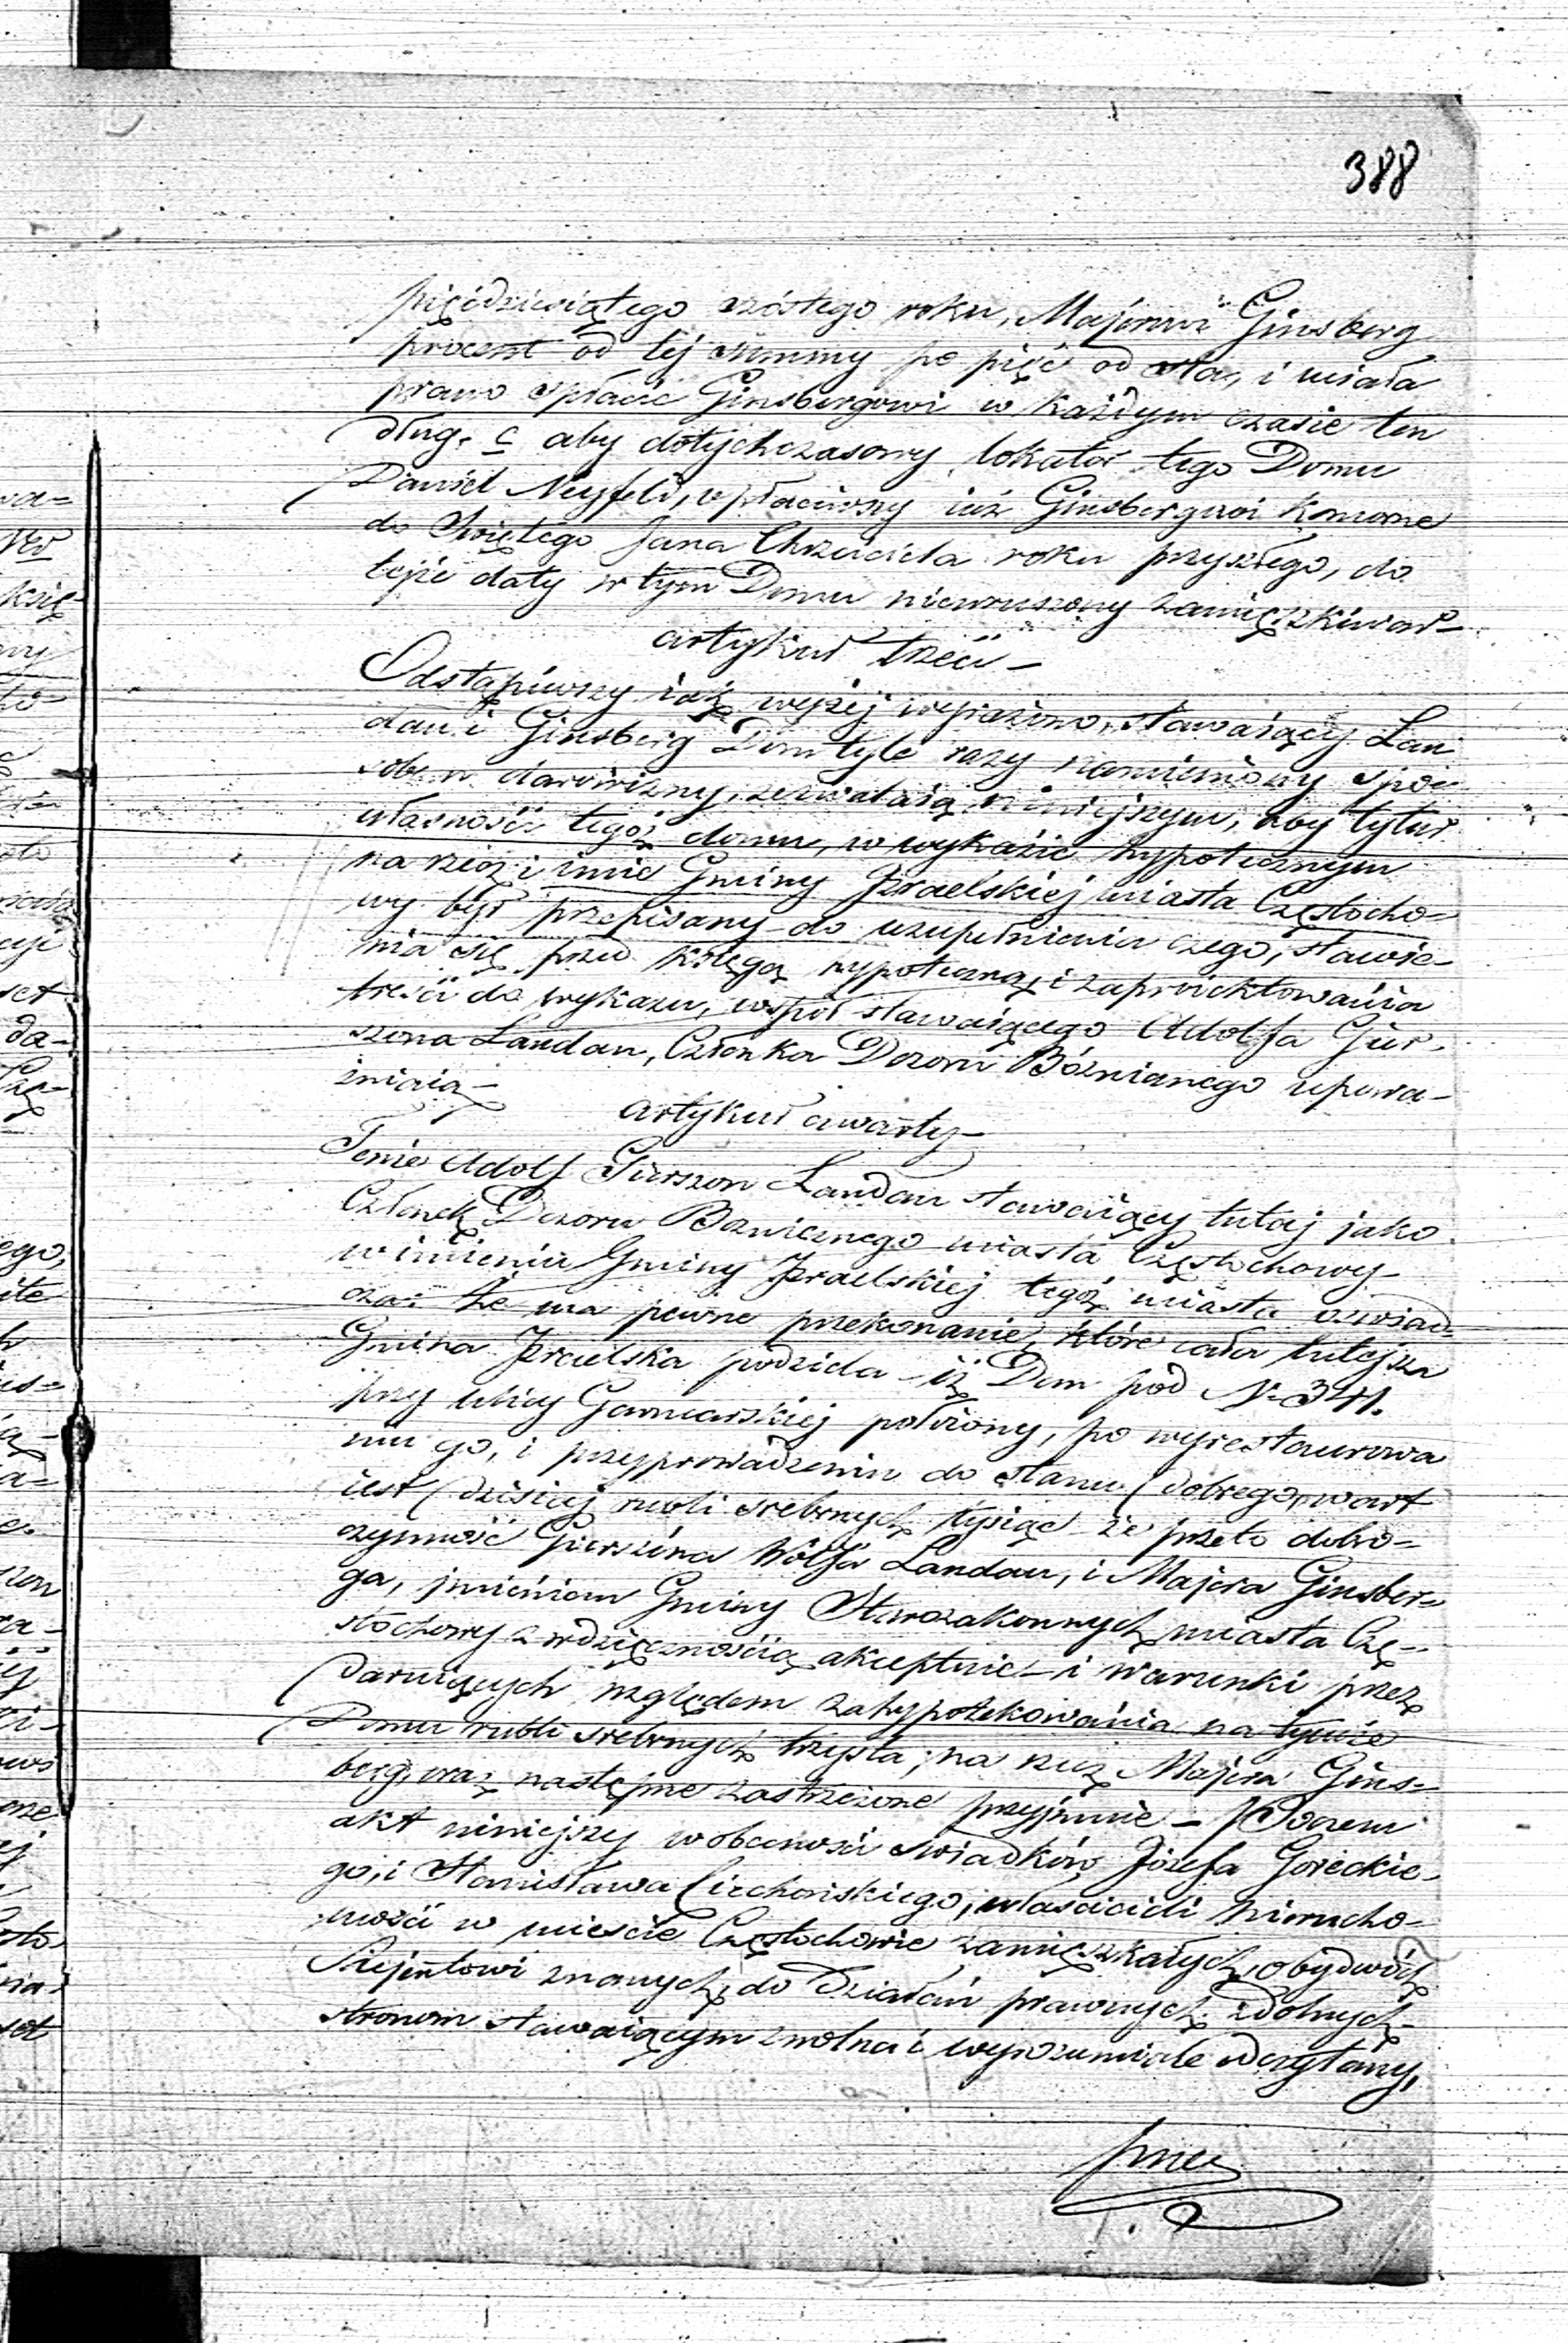 388
pięćdziesiątego szóstego roku, Majerowi Ginsberg
procent od tej summy po pięć od sta, i miała
prawo spłacić Ginsbergowi w każdym czasie ten
dług. c aby dotychczasowy lokator tego Domu
Daniel Neufeld, upłaciwszy iuż Ginsbergowi komorne
do Świętego Jana Chrzciciela roku przyszłego, do
tejże daty w tym Domu niewzruszony zamięszkiwał-
artykuł trzeci -
Odstąpiwszy iak wyżej wyrażono, stawaiący Lan
dau i Ginsberg Dom tyle razy namieniony spo-
sobem darowizny, zezwalaią ninijszym, aby tytuł
własności tegoż domu, w wykazie hypotecznym
na rzecz i imie Gminy Izraelskiej miasta Częstocho-
wy był przepisany - do uzupełnienia czego, stawie-
nia się przed księgą hypoteczną, i zaproiektowania
treści do wykazu, współ stawaiącego Adolfa Gier-
szona Landau, Członka Dozoru Bóżnicznego upowa-
żniaią -
artykuł czwarty -
Tenże Adolf Gierszon Landau stawaiący tutaj jako
Członek Dozoru Bożnicznego miasta Częstochowy
w imieniu Gminy Izraelskiej tegoż miasta oświad-
cza: że ma pewne przekonanie, które cała tutejsza
Gmina Izraelska podziela - iż Dom pod N. 341.
przy ulicy Garncarskiej położony, po wyrestaurowa
niu go, i przyprowadzeniu do stanu dobrego, wart
iest dzisiaj rubli srebrnych tysiąc - że przeto dobro-
czynność Gierszona Wolfa Landau, i Majera Ginsber-
ga, imieniem Gminy Starozakonnych miasta Czę-
stochowy z wdzięcznością akceptuie - i warunki przez
Daruiących względem zahypotekowania na tymże
Domu rubli srebrnych trzysta, na rzecz Majera Gins-
berg, oraz następne zastrzeżone przyjmuie -
akt niniejszy w obecności świadków Józefa Goreckie-
go, i Stanisława Ciechońskiego, właścicieli nierucho-
mości w mieście Częstochowie zamięszkałych, obydwóch
Rejentowi znanych, do Działań prawnych zdolnych -
stronom stawaiącym zwolna i wyrozumiale odczytany,
przez